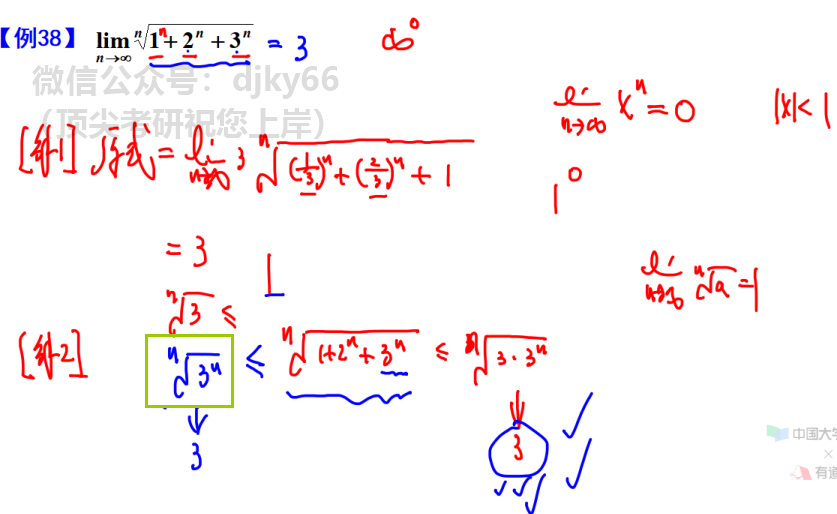 【例38】 lim n→∞ ⁿ√(1ⁿ + 2ⁿ + 3ⁿ) = 3 ∞⁰
微信公众号：djky66
（顶尖考研祝您上岸）
lim n→∞ xⁿ = 0 |x| < 1
[解1] 原式 = lim n→∞ 3 ⁿ√((1/3)ⁿ + (2/3)ⁿ + 1)
1⁰
= 3 1
lim n→∞ ⁿ√a = 1
ⁿ√3 ≤
[解2] ⁿ√(3ⁿ) ≤ ⁿ√(1+2ⁿ+3ⁿ) ≤ ⁿ√(3·3ⁿ)
↓ ↓
3 3
中国大学
×
有道